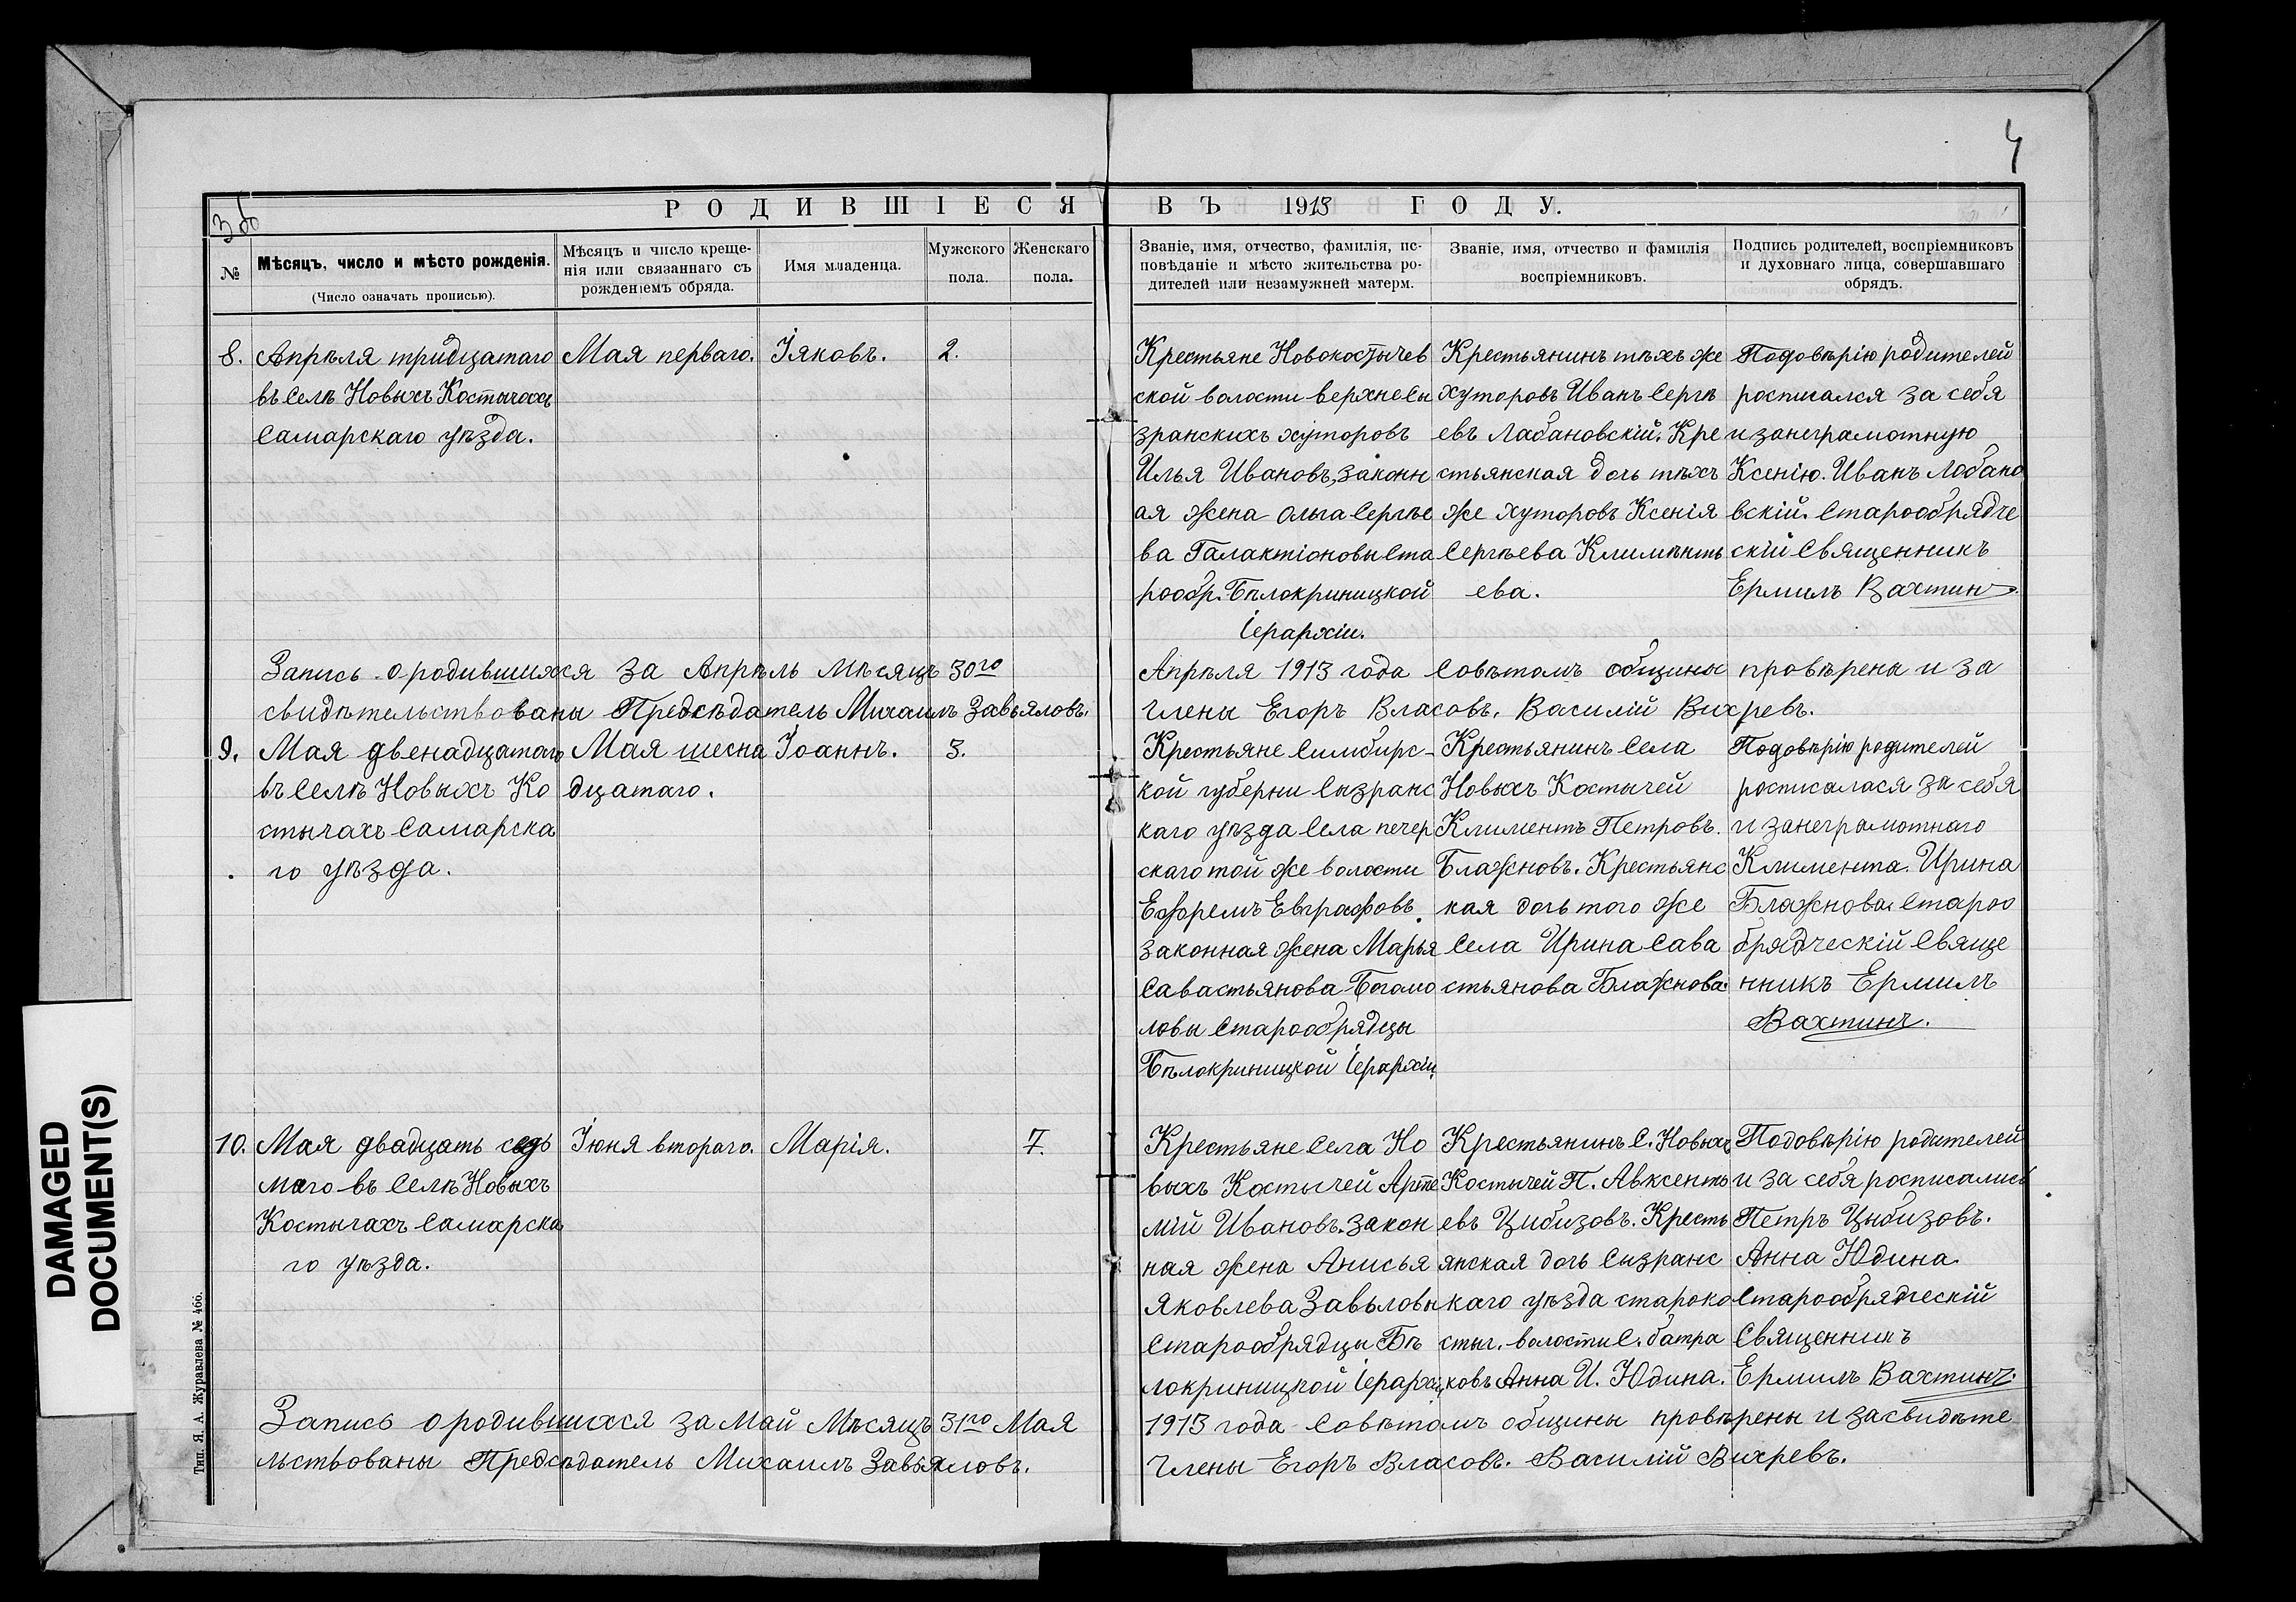 4
Зоб
РОДИВШІЕСЯ ВЪ 1913 ГОДУ.
№
Мѣсяцъ, число и мѣсто рожденія.
(Число означать прописью).
Мѣсяцъ и число креще-
нія или связаннаго съ
рожденіемъ обряда.
Имя младенца.
Мужского
пола.
Женскаго
пола.
Званіе, имя, отчество, фамилія, ис-
повѣданіе и мѣсто жительства ро-
дителей или незамужней матери.
Званіе, имя, отчество и фамилія
воспріемниковъ.
Подпись родителей, воспріемниковъ
и духовнаго лица, совершавшаго
обрядъ.
8.
Апрѣля тридцатаго
въ Селѣ Новыхъ Костычахъ
Самарскаго уѣзда.
Мая перваго.
Іяковъ.
2.
Крестьяне Новокостычев
ской волости верхне Сы
зранскихъ хуторовъ
Илья Ивановъ, законн
ая жена Ольга Сергѣе
ва Галактіоновы Ста
рообр. Бѣлокриницкой
Іерархіи.
Крестьянинъ тѣхъ же
хуторовъ Иванъ Сергѣ
евъ Лабановскій. Кре
стьянская дочь тѣхъ
же хуторовъ Ксенія
Сергѣева Климѣнть
ева.
Подовѣрію родителей
росписался за себя
и занеграмотную
Ксенію. Иванъ Лобано
вскій. Старообрядче
скій Священникъ
Ермилъ Вахтин
Запись о родившихся за Апрѣль мѣсяцъ 30го Апрѣля 1913 года Совѣтомъ общины провѣрены и за
свидѣтельствованы Предсѣдатель Михаилъ Завьяловъ. Члены Егоръ Власовъ. Василій Вихревъ.
9.
Мая двенадцатаго
въ Селѣ Новыхъ Ко
стычахъ Самарска
го уѣзда.
Мая шесна
дцатаго.
Іоаннъ.
3.
Крестьяне Симбирс-
кой губерни Сызранс
каго уѣзда Села печер
скаго той же волости
Ефремъ Евграфовъ.
законная жена Марья
Савастьянова Богомо
ловы Старообрядцы
Бѣлокриницкой Іерархіи.
Крестьянинъ Села
Новыхъ Костычей
Климентъ Петровъ.
Блажновъ. Крестьянс
кая дочь того же
Села Ирина Сава
стьянова Блажнова.
Подовѣрію родителей
росписалася за себя
и занеграмотнаго
Климента. Ирина
Блажнова. Староо
брядческій Свяще
нникъ Ермилъ
Вахтинъ.
10.
Мая двадцать седь
маго въ Селѣ Новыхъ
Костычахъ Самарска
го уѣзда.
Іюня втораго.
Марія.
7.
Крестьяне Села Но
выхъ Костычей Арте
мій Ивановъ. закон
ная жена Анисья
Яковлева Завьловы
Старообрядцы Бѣ
локриницкой Іерархіи
Крестьянинъ С. Новыхъ
Костычей П. Авксенть
евъ Цибизовъ. Кресть
янская дочь Сызранс
каго уѣзда староко
стыч. волости С. батра
ковъ Анна И. Юдина.
Подовѣрію родителей
и за себя росписались
Петръ Цыбизовъ.
Анна Юдина.
Старообрядческій
Священникъ
Ермилъ Вахтинъ.
Запись о родившихся за Май Мѣсяцъ 31го Мая 1913 года Совѣтомъ общины провѣрены и засвидѣте
льствованы Предсѣдатель Михаилъ Завьяловъ. Члены Егоръ Власовъ. Василій Вихревъ.
Тип. Я. А. Журавлева № 466.
DAMAGED
DOCUMENT(S)